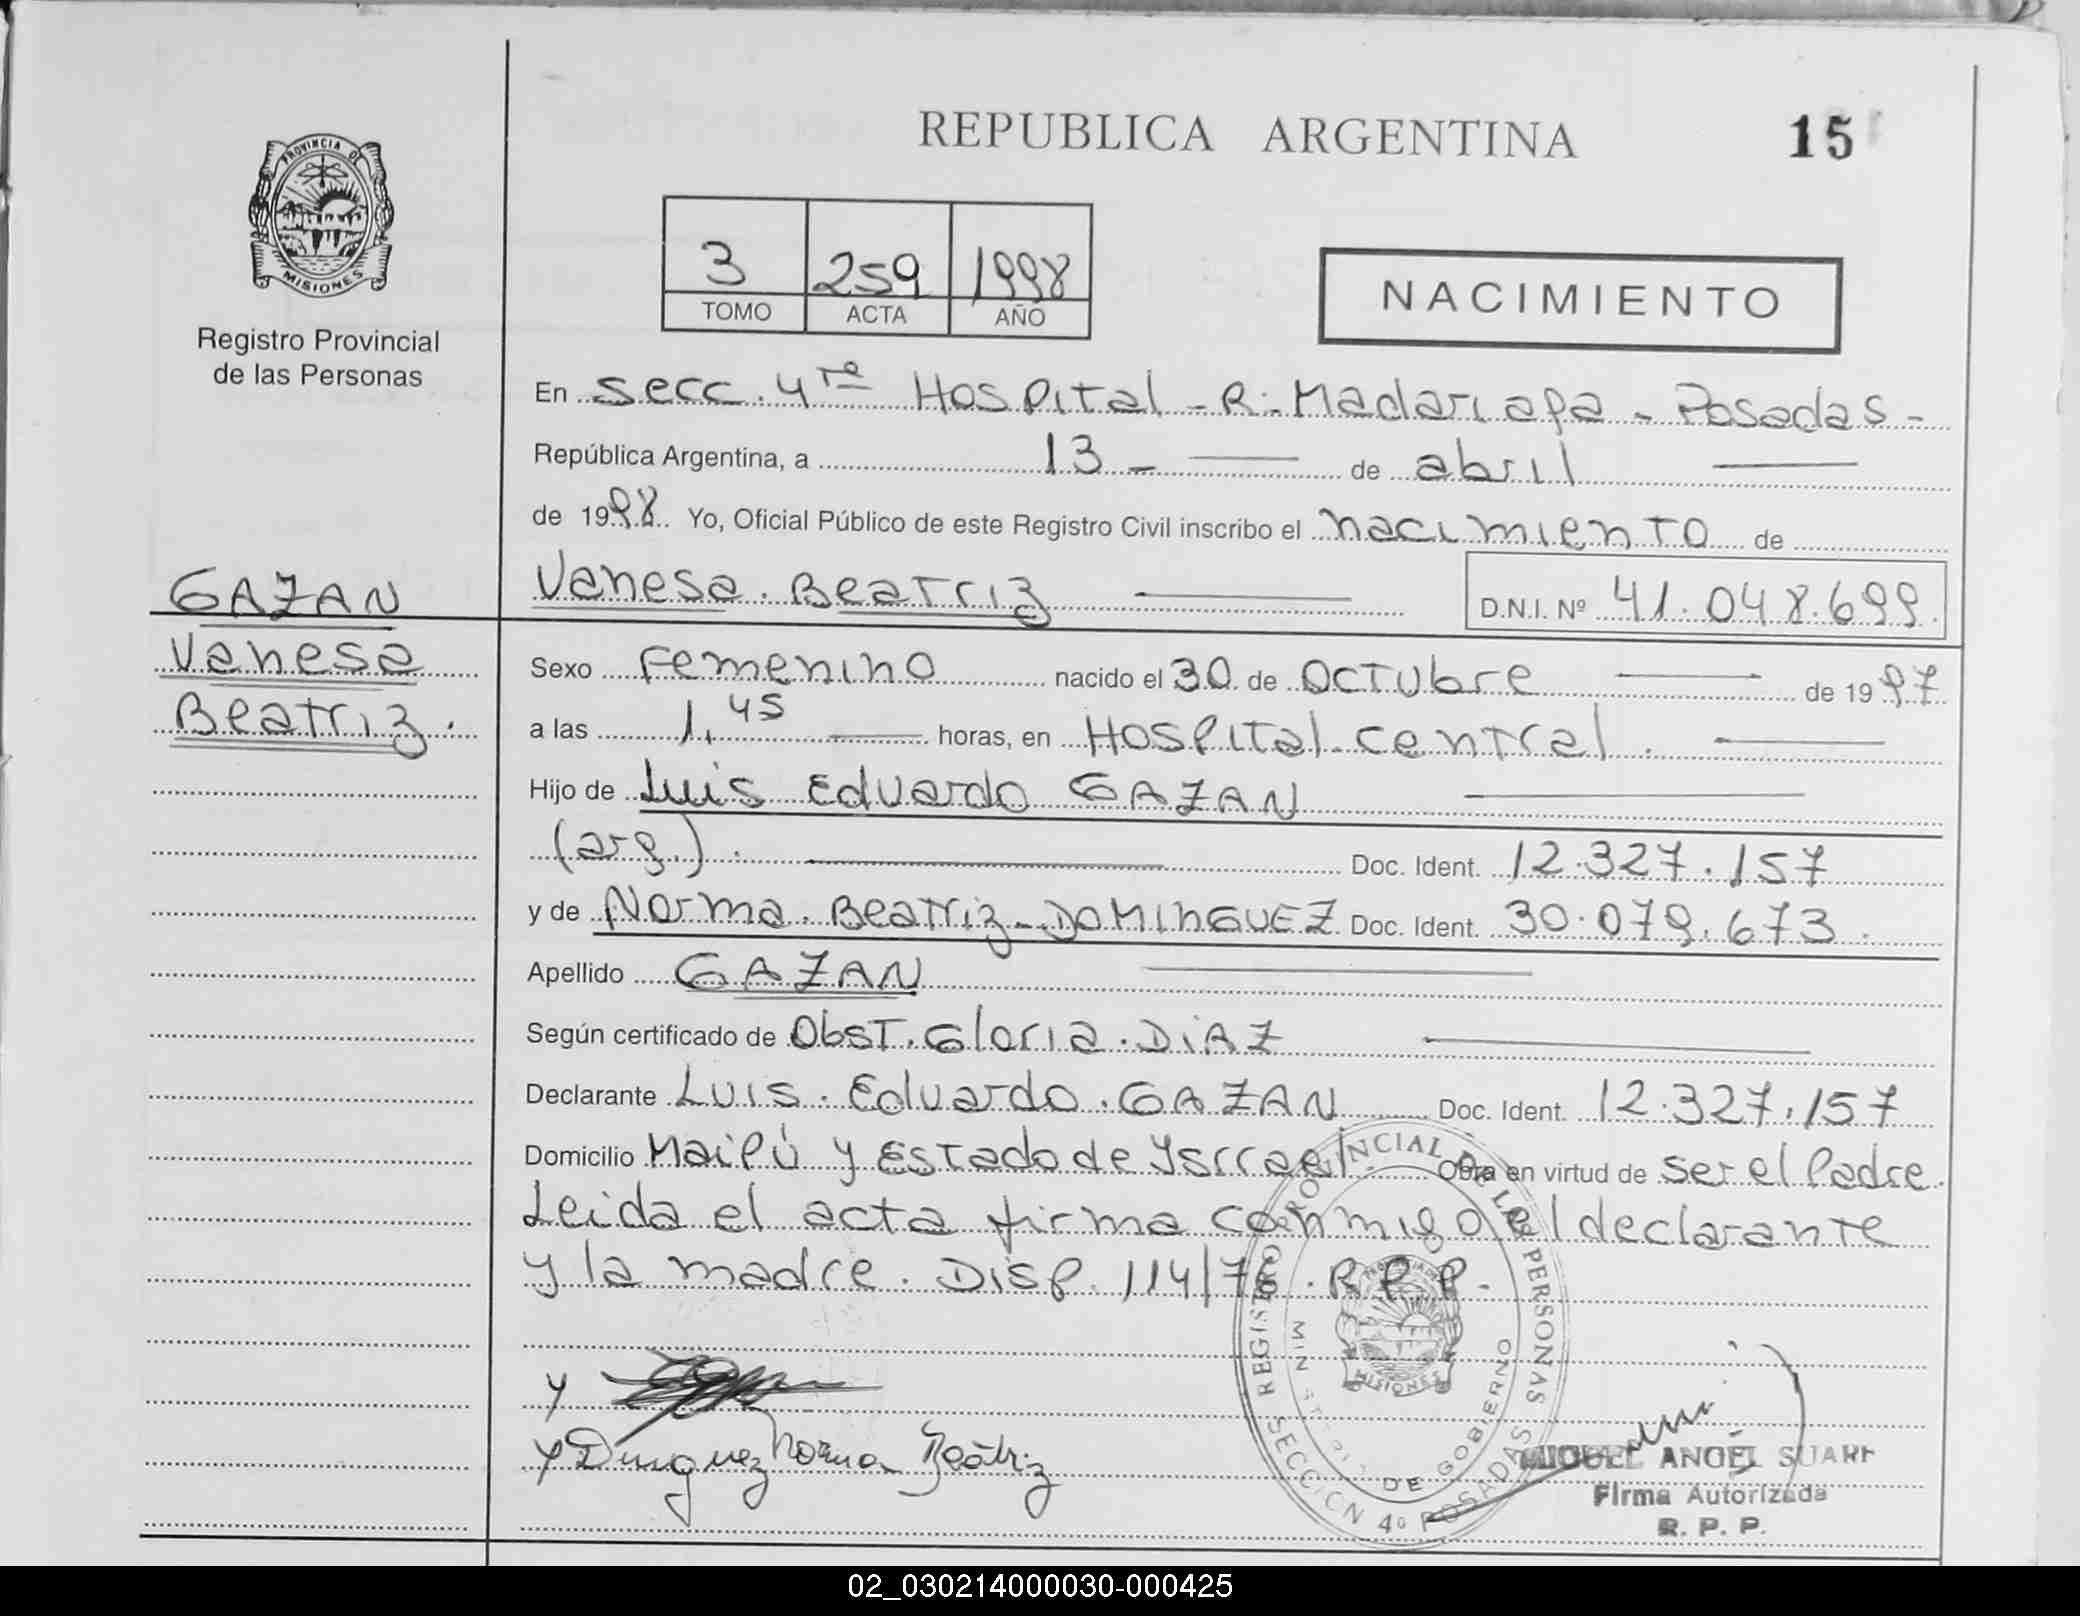 REPUBLICA ARGENTINA
15
PROVINCIA DE
MISIONES
Registro Provincial
de las Personas
3 259 1998
TOMO ACTA AÑO
NACIMIENTO
En secc. 4ta Hospital - R. Madariaga - Posadas -
República Argentina, a 13 - de abril
de 1998. Yo, Oficial Público de este Registro Civil inscribo el nacimiento de
Vanesa. Beatriz D.N.I. Nº 41.048.699.
GAZAN
Vanesa
Beatriz.
Sexo Femenino nacido el 30 de Octubre de 1997
a las 1,45 horas, en Hospital central.
Hijo de Luis Eduardo GAZAN
(arg.). Doc. Ident. 12.327.157
y de Norma. Beatriz - DOMINGUEZ Doc. Ident. 30.079.673.
Apellido GAZAN
Según certificado de Obst. Gloria. DIAZ
Declarante Luis. Eduardo. GAZAN Doc. Ident. 12.327.157
Domicilio Maipú y Estado de Ysrrael. Obra en virtud de ser el Padre.
Leida el acta firma conmigo el declarante
y la madre. Disp. 114/76. R.P.P.
Y
Y Dmguez Norma Beatriz
REGISTRO PROVINCIAL DE LAS PERSONAS
MINISTERIO DE GOBIERNO
MISIONES
SECCION 4º POSADAS
MIGUEL ANGEL SUAR
Firma Autorizada
R. P. P.
02_030214000030-000425